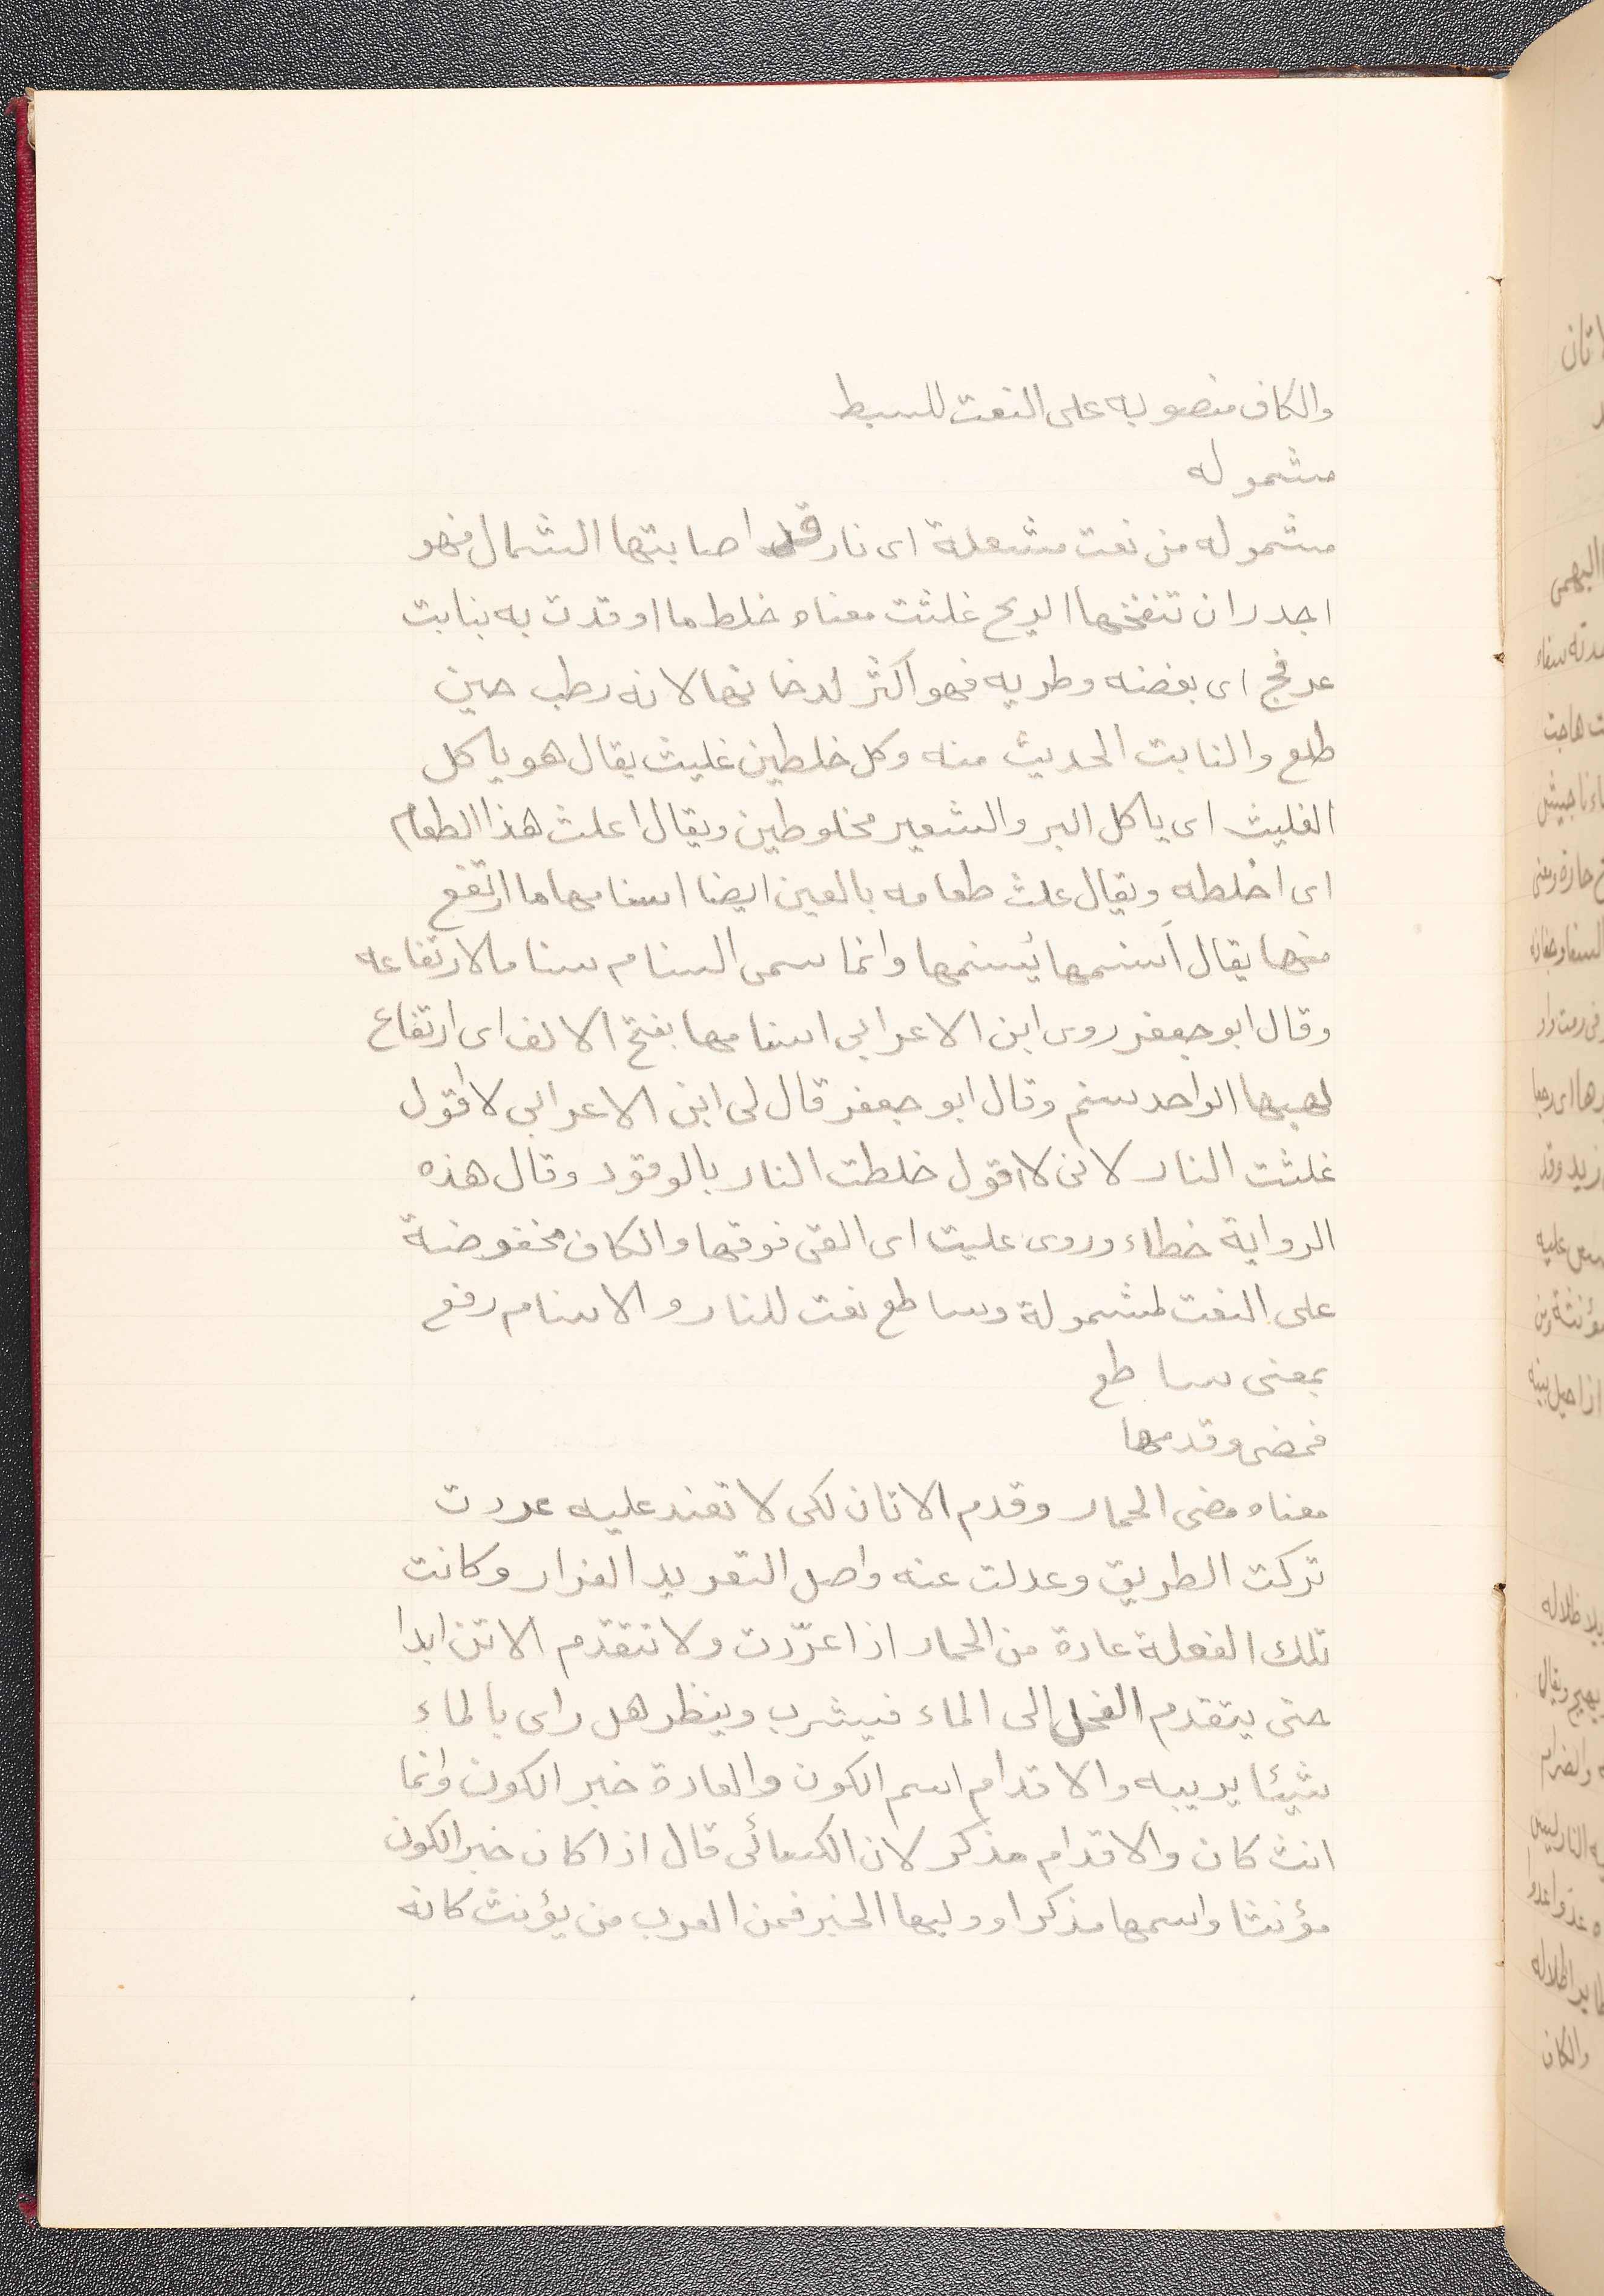 والكاف منصوبه على النعت للسبط
مشموله
مشموله من نعت مشعلة اى نار قد اصابتها الشمال فهو
اجدر ان تنفخها الريح غلثت معناه خلط ما اوقدت به بنابت
عرفج اى بغضنه وطريه فهو اكثر لدخانها لانه رطب حين
طلع والنابت الحديث منه وكل خلطين غليث يقال هو ياكل
الغليث اى ياكل البر والشعير مخلوطين ويقال اعلث هذا الطعام
اى اخلطه ويقال علث طعامه بالعين ايضا اسنامها ما ارتفع
منها يقال اَسنمها يُسنمها وانما سمى السنام سناما لارتفاعه
وقال ابو جعفر روى ابن الاعرابى اسنامها بفتح الالف اى ارتفاع
لهبها الواحد سنم وقال ابو جعفر قال لى ابن الاعرابى لا اقول
غلثت النار لانى لا اقول خلطت النار بالوقود وقال هذه
الرواية خطاء وروى عليت اى القى فوقها والكاف مخفوضة
على النعت لمشمولة وساطع نعت للنار والاسنام رفع
بمعنى ساطع
فمضى وقدمها
معناه مضى الحمار وقدم الاتان لكى لا تعند عليه عردت
تركت الطريق وعدلت عنه واصل التعريد الفرار وكانت
تلك الفعلة عادة من الحمار اذا عرّدت ولا تتقدم الاتن ابدا
حتى يتقدم الفحل الى الماء فيشرب وينظر هل راى بالماء
شيئا يريبه والاقدام اسم الكون والعادة خبر الكون وانما
انث كان والاقدام مذكر لان الكسائى قال اذا كان خبر الكون
مؤنثا واسمها مذكرا ووليها الخبر فمن العرب من يؤنث كانه